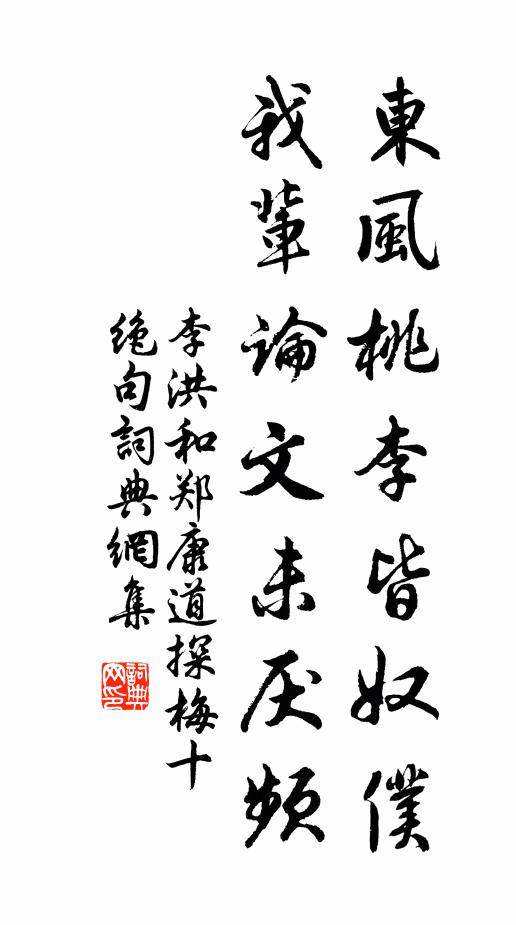 東風桃李皆奴僕
我輩論文未厌頻
李洪和郑康道探梅十
绝句詞典網集
詞典
网印